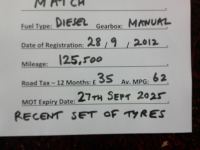 MATCH
Fuel Type: DIESEL Gearbox: MANUAL
Date of Registration: 28, 9, 2012
Mileage: 125,500
Road Tax – 12 Months: £ 35 Av. MPG: 62
MOT Expiry Date: 27TH SEPT 2025
RECENT SET OF TYRES